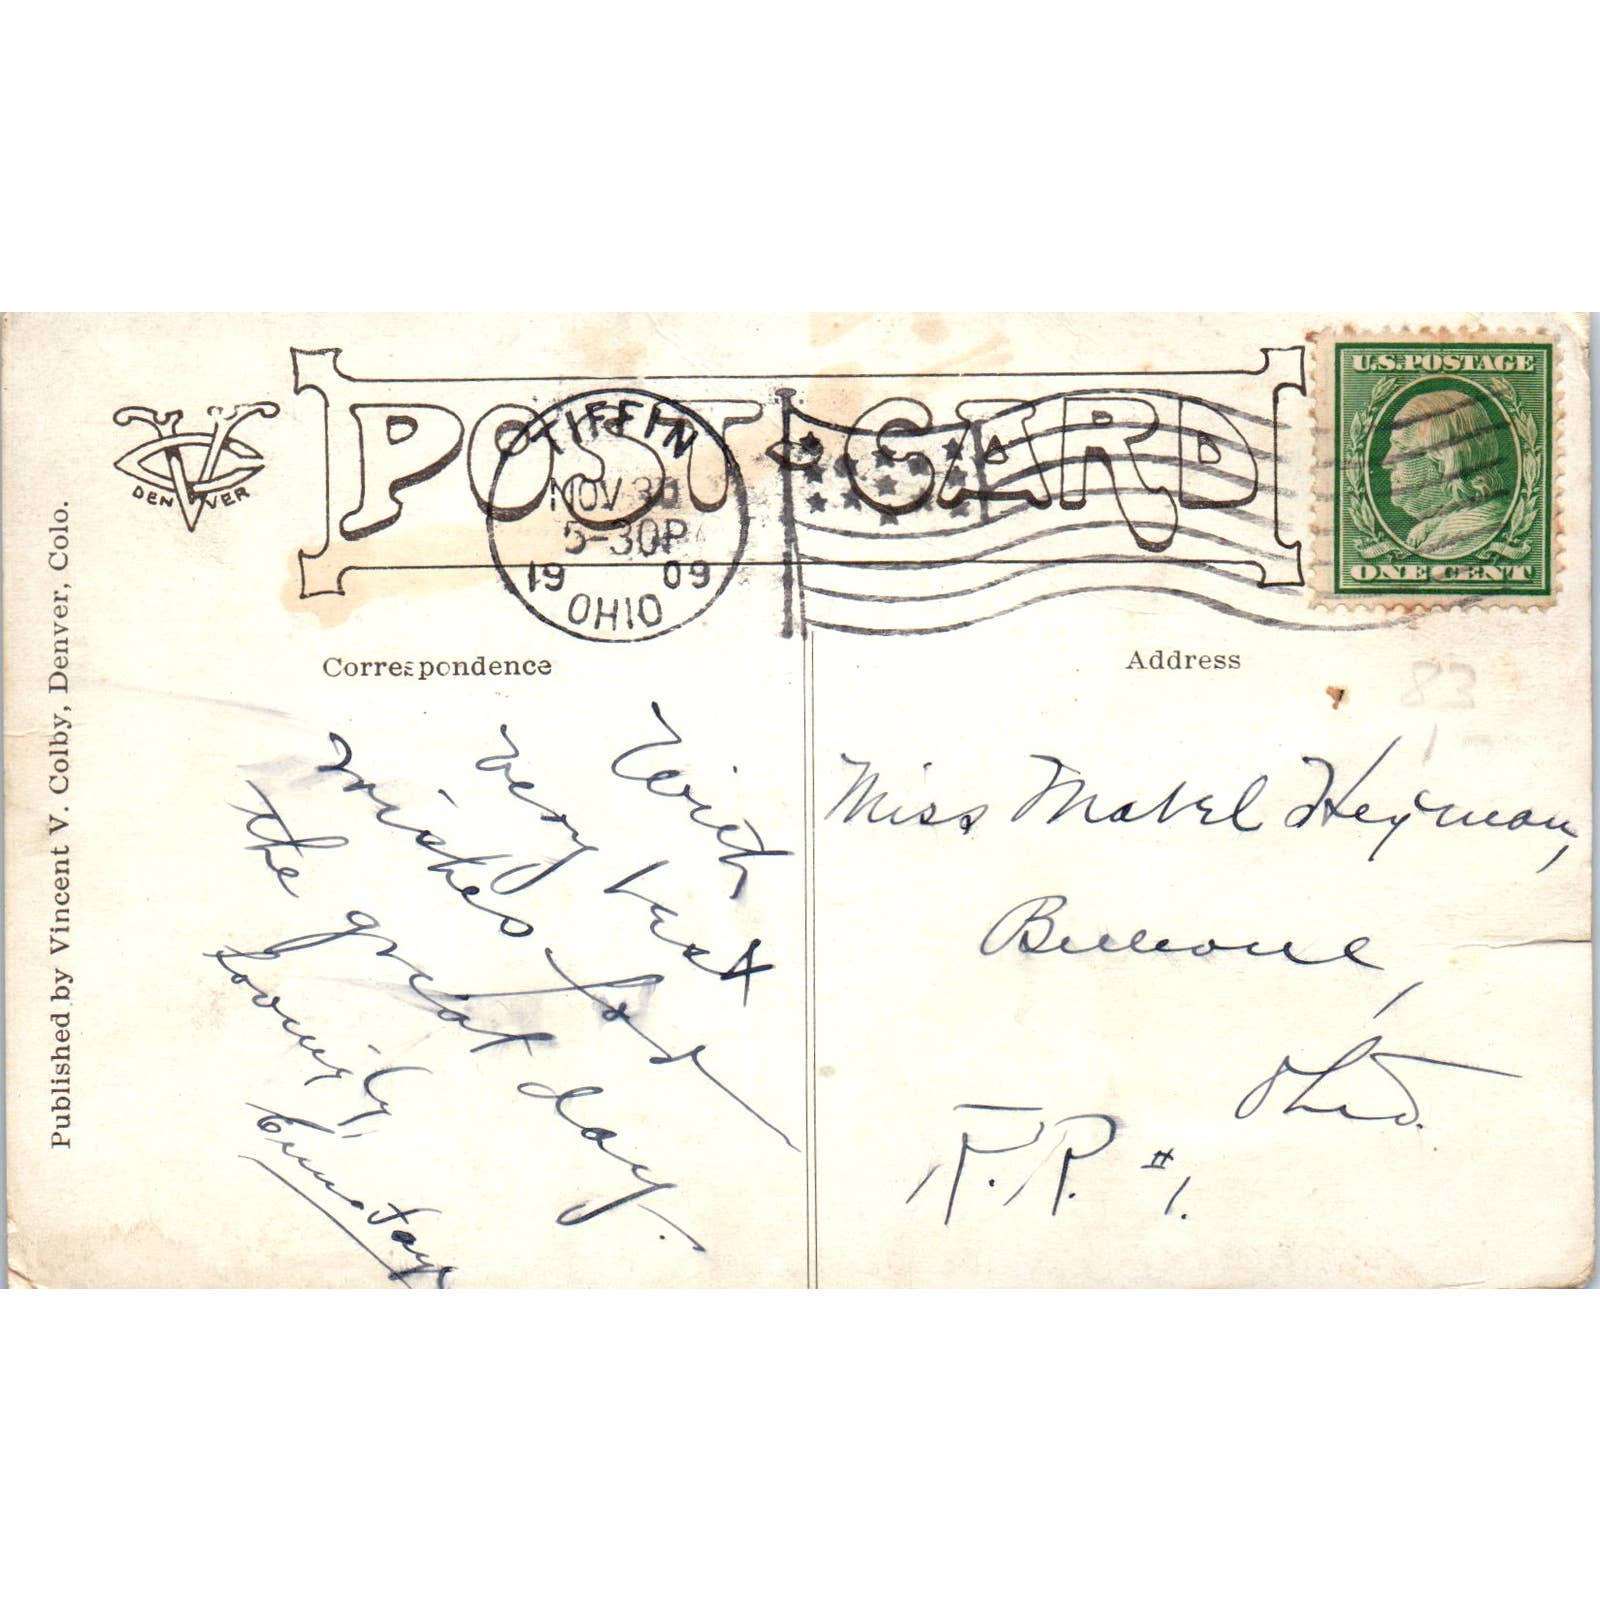 POST CARD
DENVER
TIFFIN
NOV 30
5-30P
1909
OHIO
U.S. POSTAGE
ONE CENT
Published by Vincent V. Colby, Denver, Colo.
Correspondence
With
very best
wishes for
the great day.
Lovingly
Address
83
1-
Miss Mabel Heyman,
Ohio.
R.R. #1.